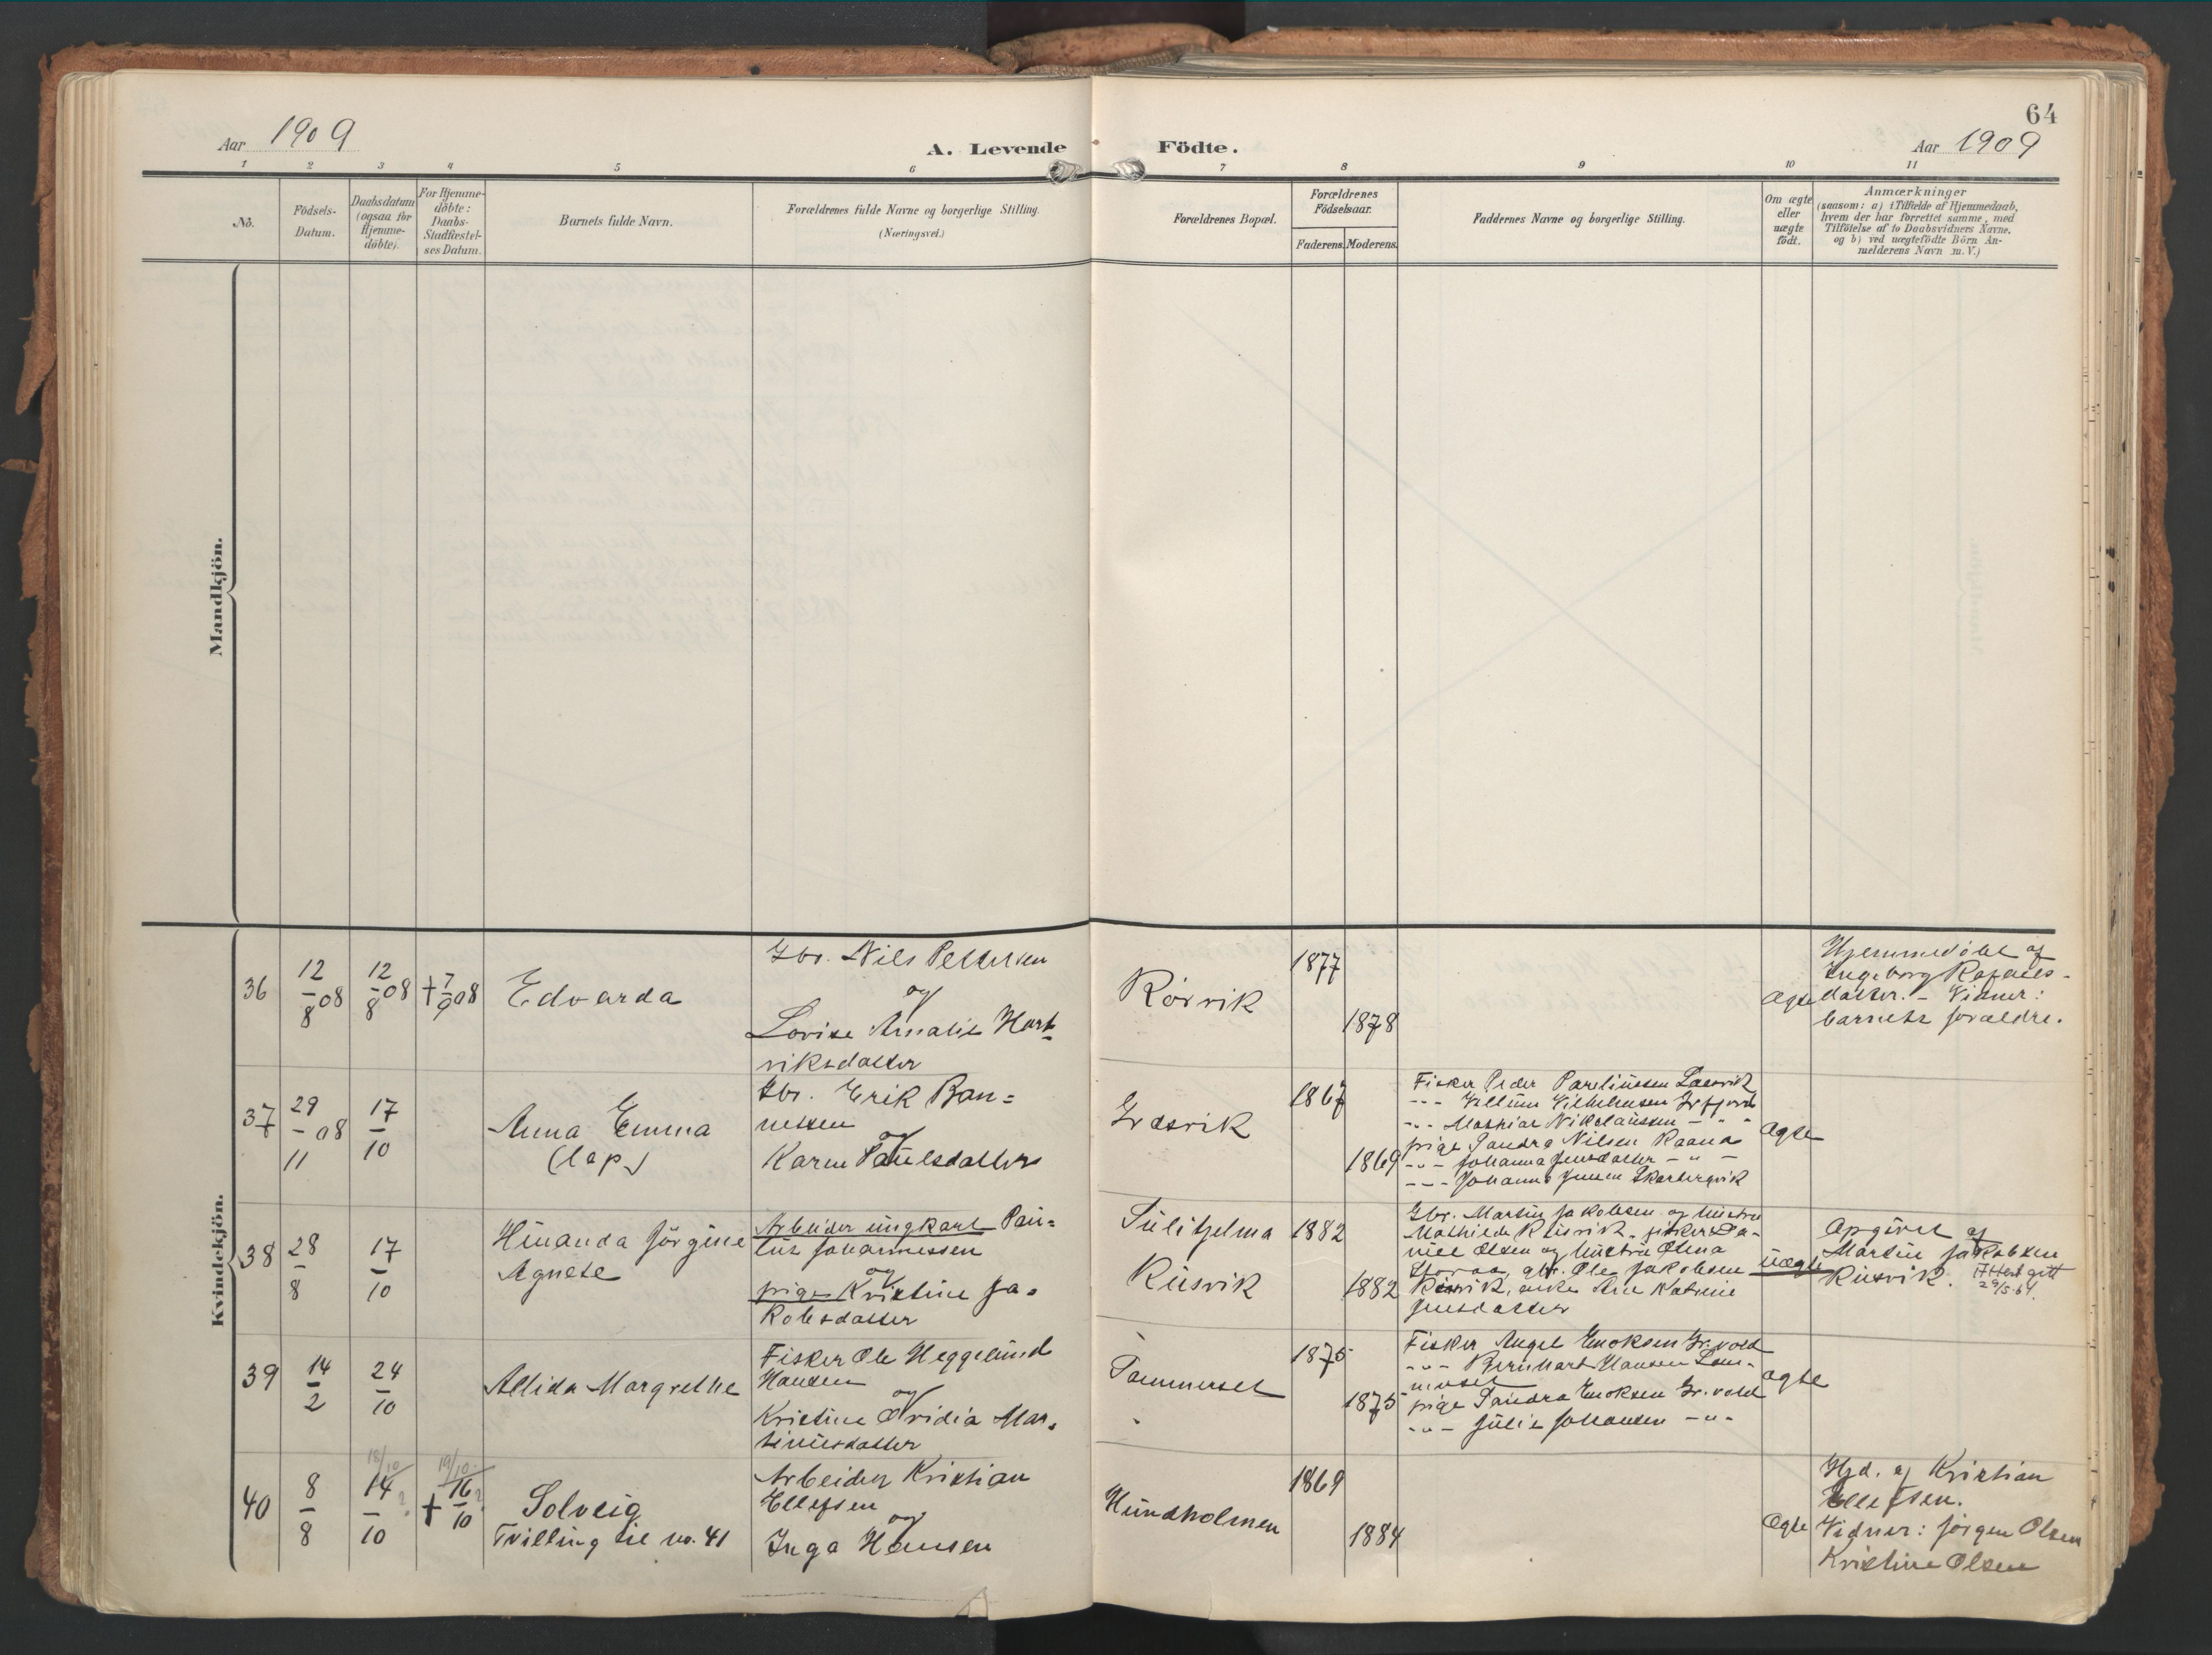 64
Aar 1909
A. Levende
Födte.
Aar 1909
1 2 3 4 5 6 7 8 9 10 11
No.
Födsels-
Datum.
Daabsdatum
(ogsaa for
Hjemme-
döbte).
For Hjemme-
döbte:
Daabs-
Stadfæstel-
ses Datum.
Barnets fulde Navn.
Forældrenes fulde Navne og borgerlige Stilling.
(Næringsvei.)
Forældrenes Bopæl.
Forældrenes
Födselsaar.
Faderens.
Moderens.
Faddernes Navne og borgerlige Stilling.
Om ægte
eller
uægte
födt.
Anmærkninger
(saasom: a) i Tilfælde af Hjemmedaab,
hvem der har forrettet samme, med
Tilföielse af to Daabsvidners Navne,
og b) ved uægtefödte Börn An-
melderens Navn m. V.)
Mandkjön.
Kvindekjön.
36
12/8 08
12/8 08
+ 7/9 08
Edvarda
Gbr. Nils Pettersen
og
Lovise Amalie Hart-
viksdatter
Rörvik
1877
1878
ægte
Hjemmedöbt af
Ingeborg Rafaels-
datter. - Vidner:
barnets forældre.
37
29/11 08
17/10
Anna Emma
(lap)
Gbr. Erik Ban=
nessen
og
Karen Paulsdatter
Grasvik
1867
1869
Fisker Peder Pareliussen
-"- Villum Vilhelmsen
-"- Mathias Nikolaussen - " -
pige Sandra Nilsen Raana
-"- Johanna Jensdatter - " -
-"- Johanna Jensen Skarbergvik
ægte
38
28/8
17/10
Hinanda Jörgine
Agnete
Arbeider ungkarl Pau=
lus Johannessen
og
pige Kristine Ja=
kobsdatter
Sulitjelma
Rusvik
1882
1882
Gbr. Martin Jakobsen og hustru
Mathilde Rusvik, fisker Da-
niel Olsen og hustru Olina
Storaa, gbr. Ole Jakobsen
Rusvik, enke Ane Katrine
Jensdatter
uægte
Opgivet af
Martin Jakobsen
Rusvik.
Attest gitt
29/5-64.
39
14/2
24/10
Allida Margrethe
Fisker Ole Heggelund
Hansen
og
Kristine Ovidia Mar=
tinusdatter
Tommerset
1875
1875
Fisker Angel Enoksen Gr.vold
-"- Bernhart Hansen Tom-
merset
pige Sandra Enoksen Gr.vold
-"- Julie Johansen -"-
ægte
40
8/8
18/10
14/10 ?
19/10
+ 16/10 ?
Solveig
Tvilling til no. 41
Arbeider Kristian
Ellefsen
og
Inga Hansen
Hundholmen
1869
1884
ægte
Hjd. af Kristian
Ellefsen.
Vidner: Jörgen Olsen
Kristine Olsen